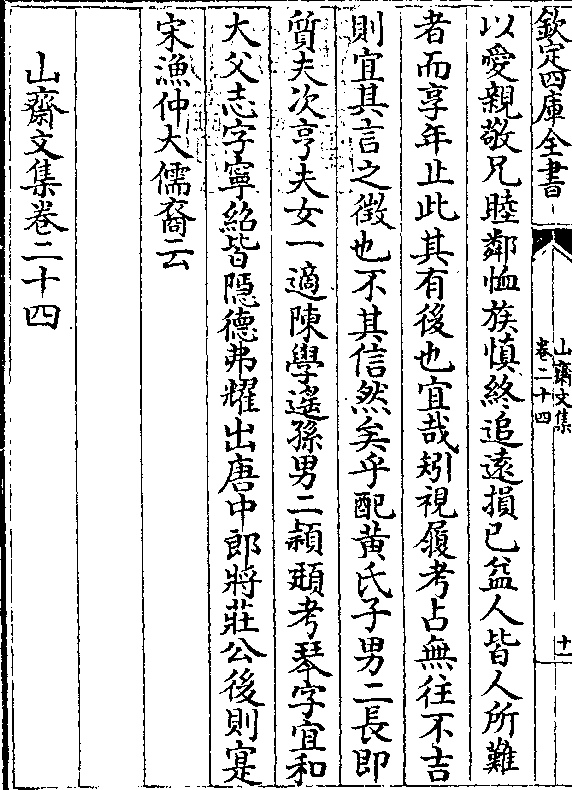 欽定四庫全書
山齋文集
卷二十四
十一
以愛親敬兄睦鄰恤族慎終追遠損已益人皆人所難
者而享年止此其有後也宜哉矧視履考占無往不吉
則宜其言之徵也不其信然矣乎配黃氏子男二長即
質夫次亨夫女一適陳學遙孫男二潁頲考琴字宜和
大父志字寧紹皆隱德弗耀出唐中郎將莊公後則寔
宋漁仲大儒裔云
山齋文集卷二十四